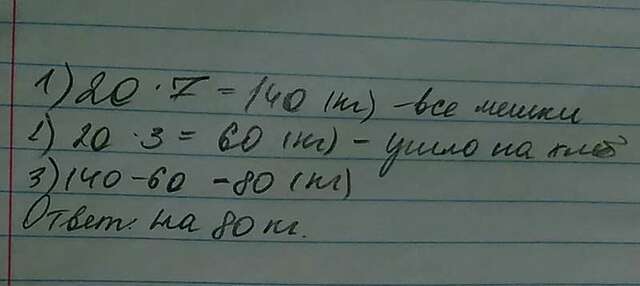 1) 20 · 7 = 140 (кг) - все мешки
2) 20 · 3 = 60 (кг) - ушло на хлеб
3) 140 - 60 - 80 (кг)
Ответ: на 80 кг.